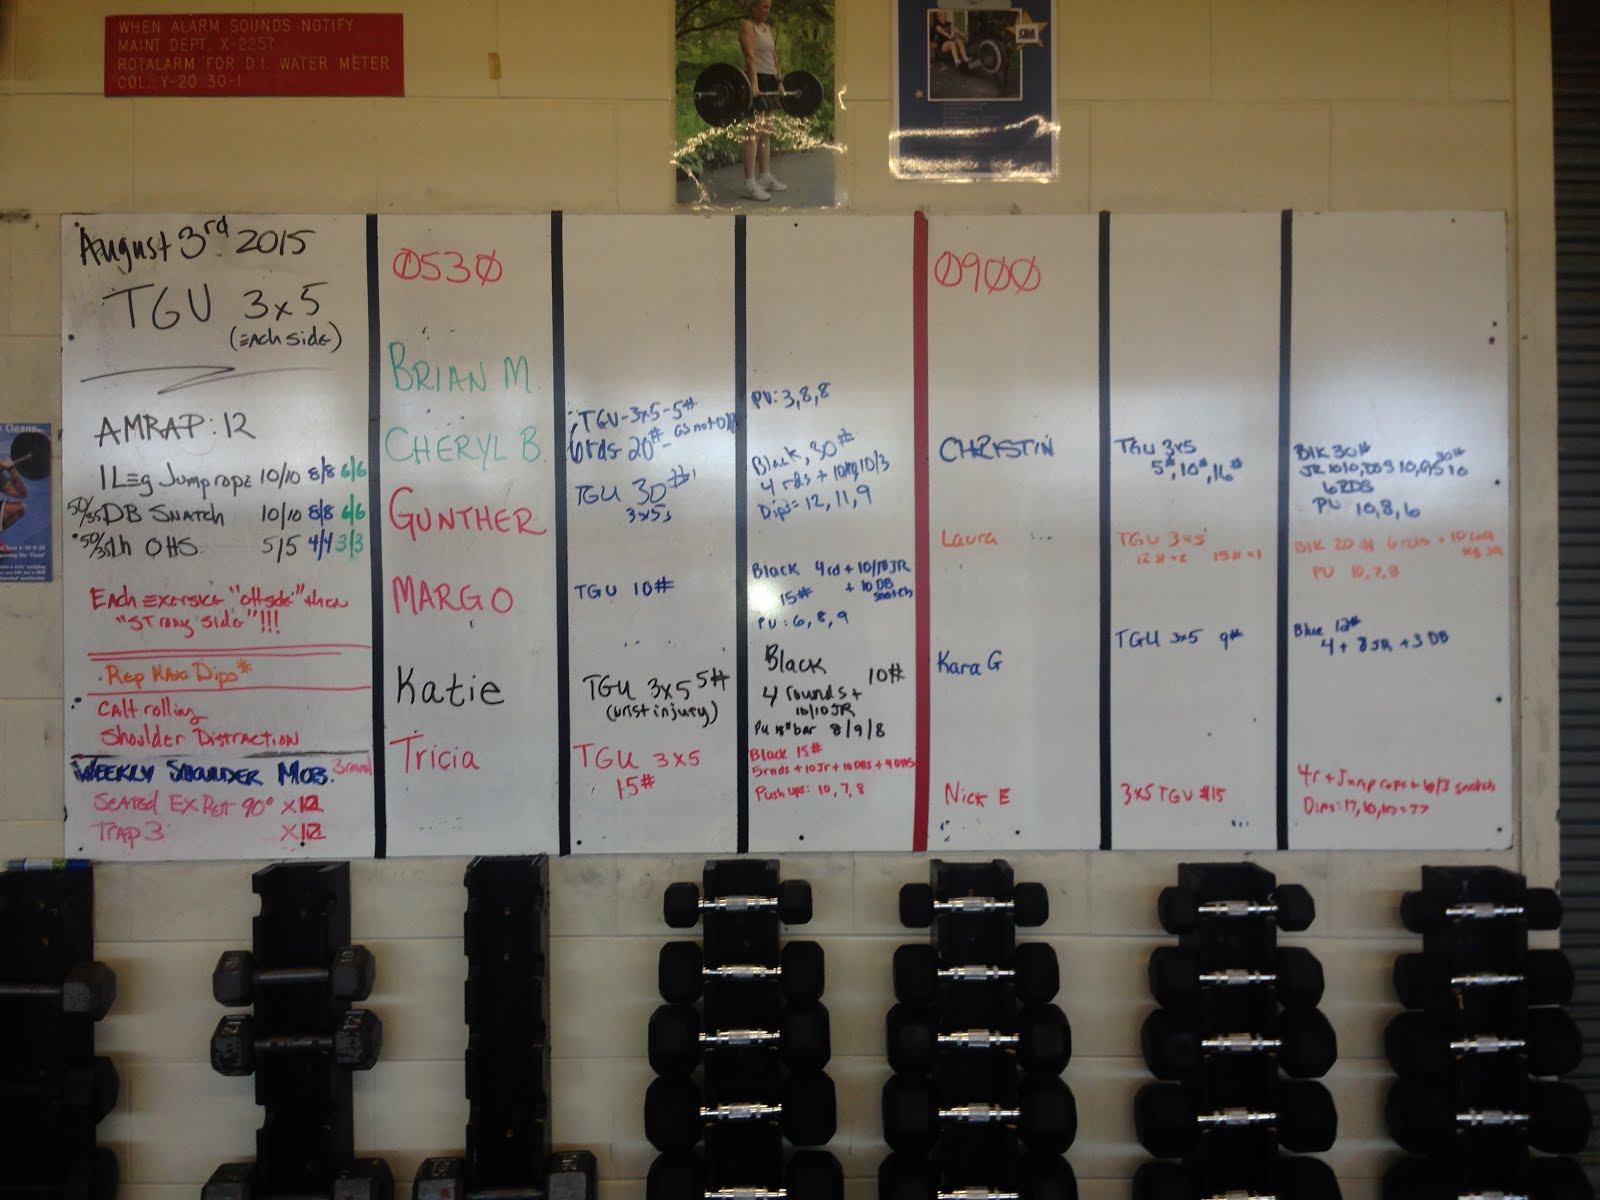 WHEN ALARM SOUNDS NOTIFY
MAINT DEPT. X-2257
ROTALARM FOR D.I. WATER METER
COL. Y-20 30-1
August 3rd 2015
TGU 3x5
(EACH SIDE)
AMRAP: 12
1 Leg Jump rope 10/10 8/8 6/6
50/35 DB SNATCH 10/10 8/8 6/6
50/35 1h OHS 5/5 4/4 3/3
EACH EXERCISE "OFFSIDE" then
"STRONG SIDE"!!!
Rep Max Dips*
CALF rolling
Shoulder Distraction
WEEKLY SHOULDER MOB.
SEATED EX ROT 90° x12
TRAP 3 x12
0530
BRIAN M.
CHERYL B.
GUNTHER
MARGO
Katie
Tricia
TGU-3x5-5#
6rds 20#
TGU 30#
3x5s
TGU 10#
TGU 3x5 5#
(wrist injury)
TGU 3x5
15#
PU: 3,8,8
Black, 30#
4 rds + 10/10 10/3
Dips= 12, 11, 9
Black 4rd + 10/10 JR
15# + 10 DB
snatch
PU: 6, 8, 9
Black 10#
4 rounds +
10/10 JR
PU bar 8/9/8
Black 15#
5rnds + 10Jr + 10DBS +
Push ups: 10, 7, 8
0900
CHRISTIN
Laura
Kara G
Nick E
TGU 3x5
5#, 10#, 16#
TGU 3x5
12# x2 15# x1
TGU 3x5 9#
3x5 TGU #15
Blk 30#
6RDS
PU 10, 8, 6
Blk 20# 6 rds +
PU 10, 7, 8
Blue 12#
4 + 8 JR + 3 DB
4r + Jump rope + 6/3 snatch
Dips: 17,10,10